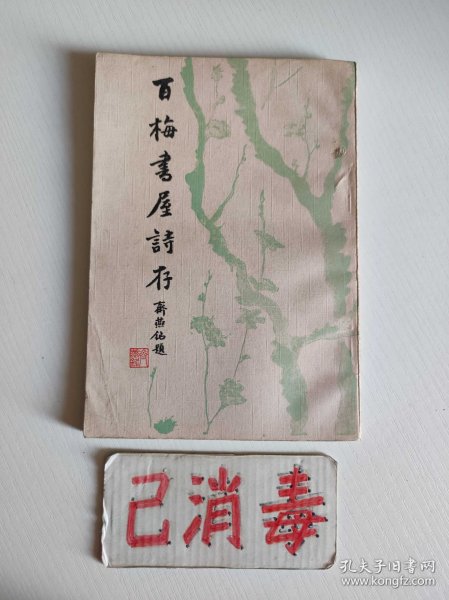 百梅書屋詩存
齊燕铭題
已消毒
孔夫子旧书网
www.kongfz.com